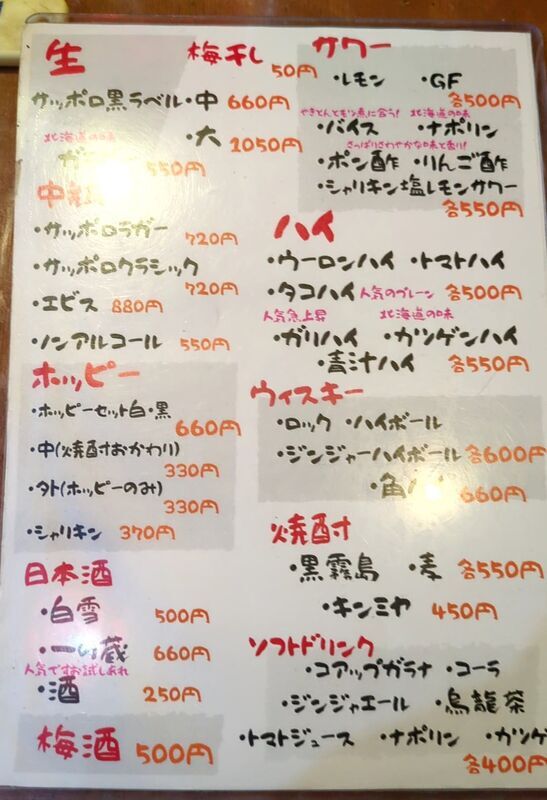 生
サッポロ黒ラベル・中 660円
・大 1050円
北海道の味
550円
・サッポロラガー
720円
・サッポロクラシック
720円
・エビス 880円
・ノンアルコール 550円
ホッピー
・ホッピーセット白・黒
660円
・中(焼酎おかわり)
330円
・外(ホッピーのみ)
330円
・シャリキン 370円
日本酒
・白雪 500円
・一ノ蔵 660円
人気ですお試しあれ
・酒 250円
梅酒 500円
梅干し
50円
サワー
・レモン ・GF
各500円
やきとんともつ煮に合う! 北海道の味
・バイス ・ナポリン
さっぱりさわやかな味と香り!
・ポン酢 ・りんご酢
・シャリキン塩レモンサワー
各550円
ハイ
・ウーロンハイ ・トマトハイ
・タコハイ 人気のプレーン 各500円
人気急上昇 北海道の味
・ガリハイ ・カツゲンハイ
・青汁ハイ 各550円
ウィスキー
・ロック ・ハイボール
・ジンジャーハイボール 各600円
・角 660円
焼酎
・黒霧島 ・麦 各550円
・キンミヤ 450円
ソフトドリンク
・コアップガラナ ・コーラ
・ジンジャエール ・烏龍茶
・トマトジュース ・ナポリン ・カツゲ
各400円